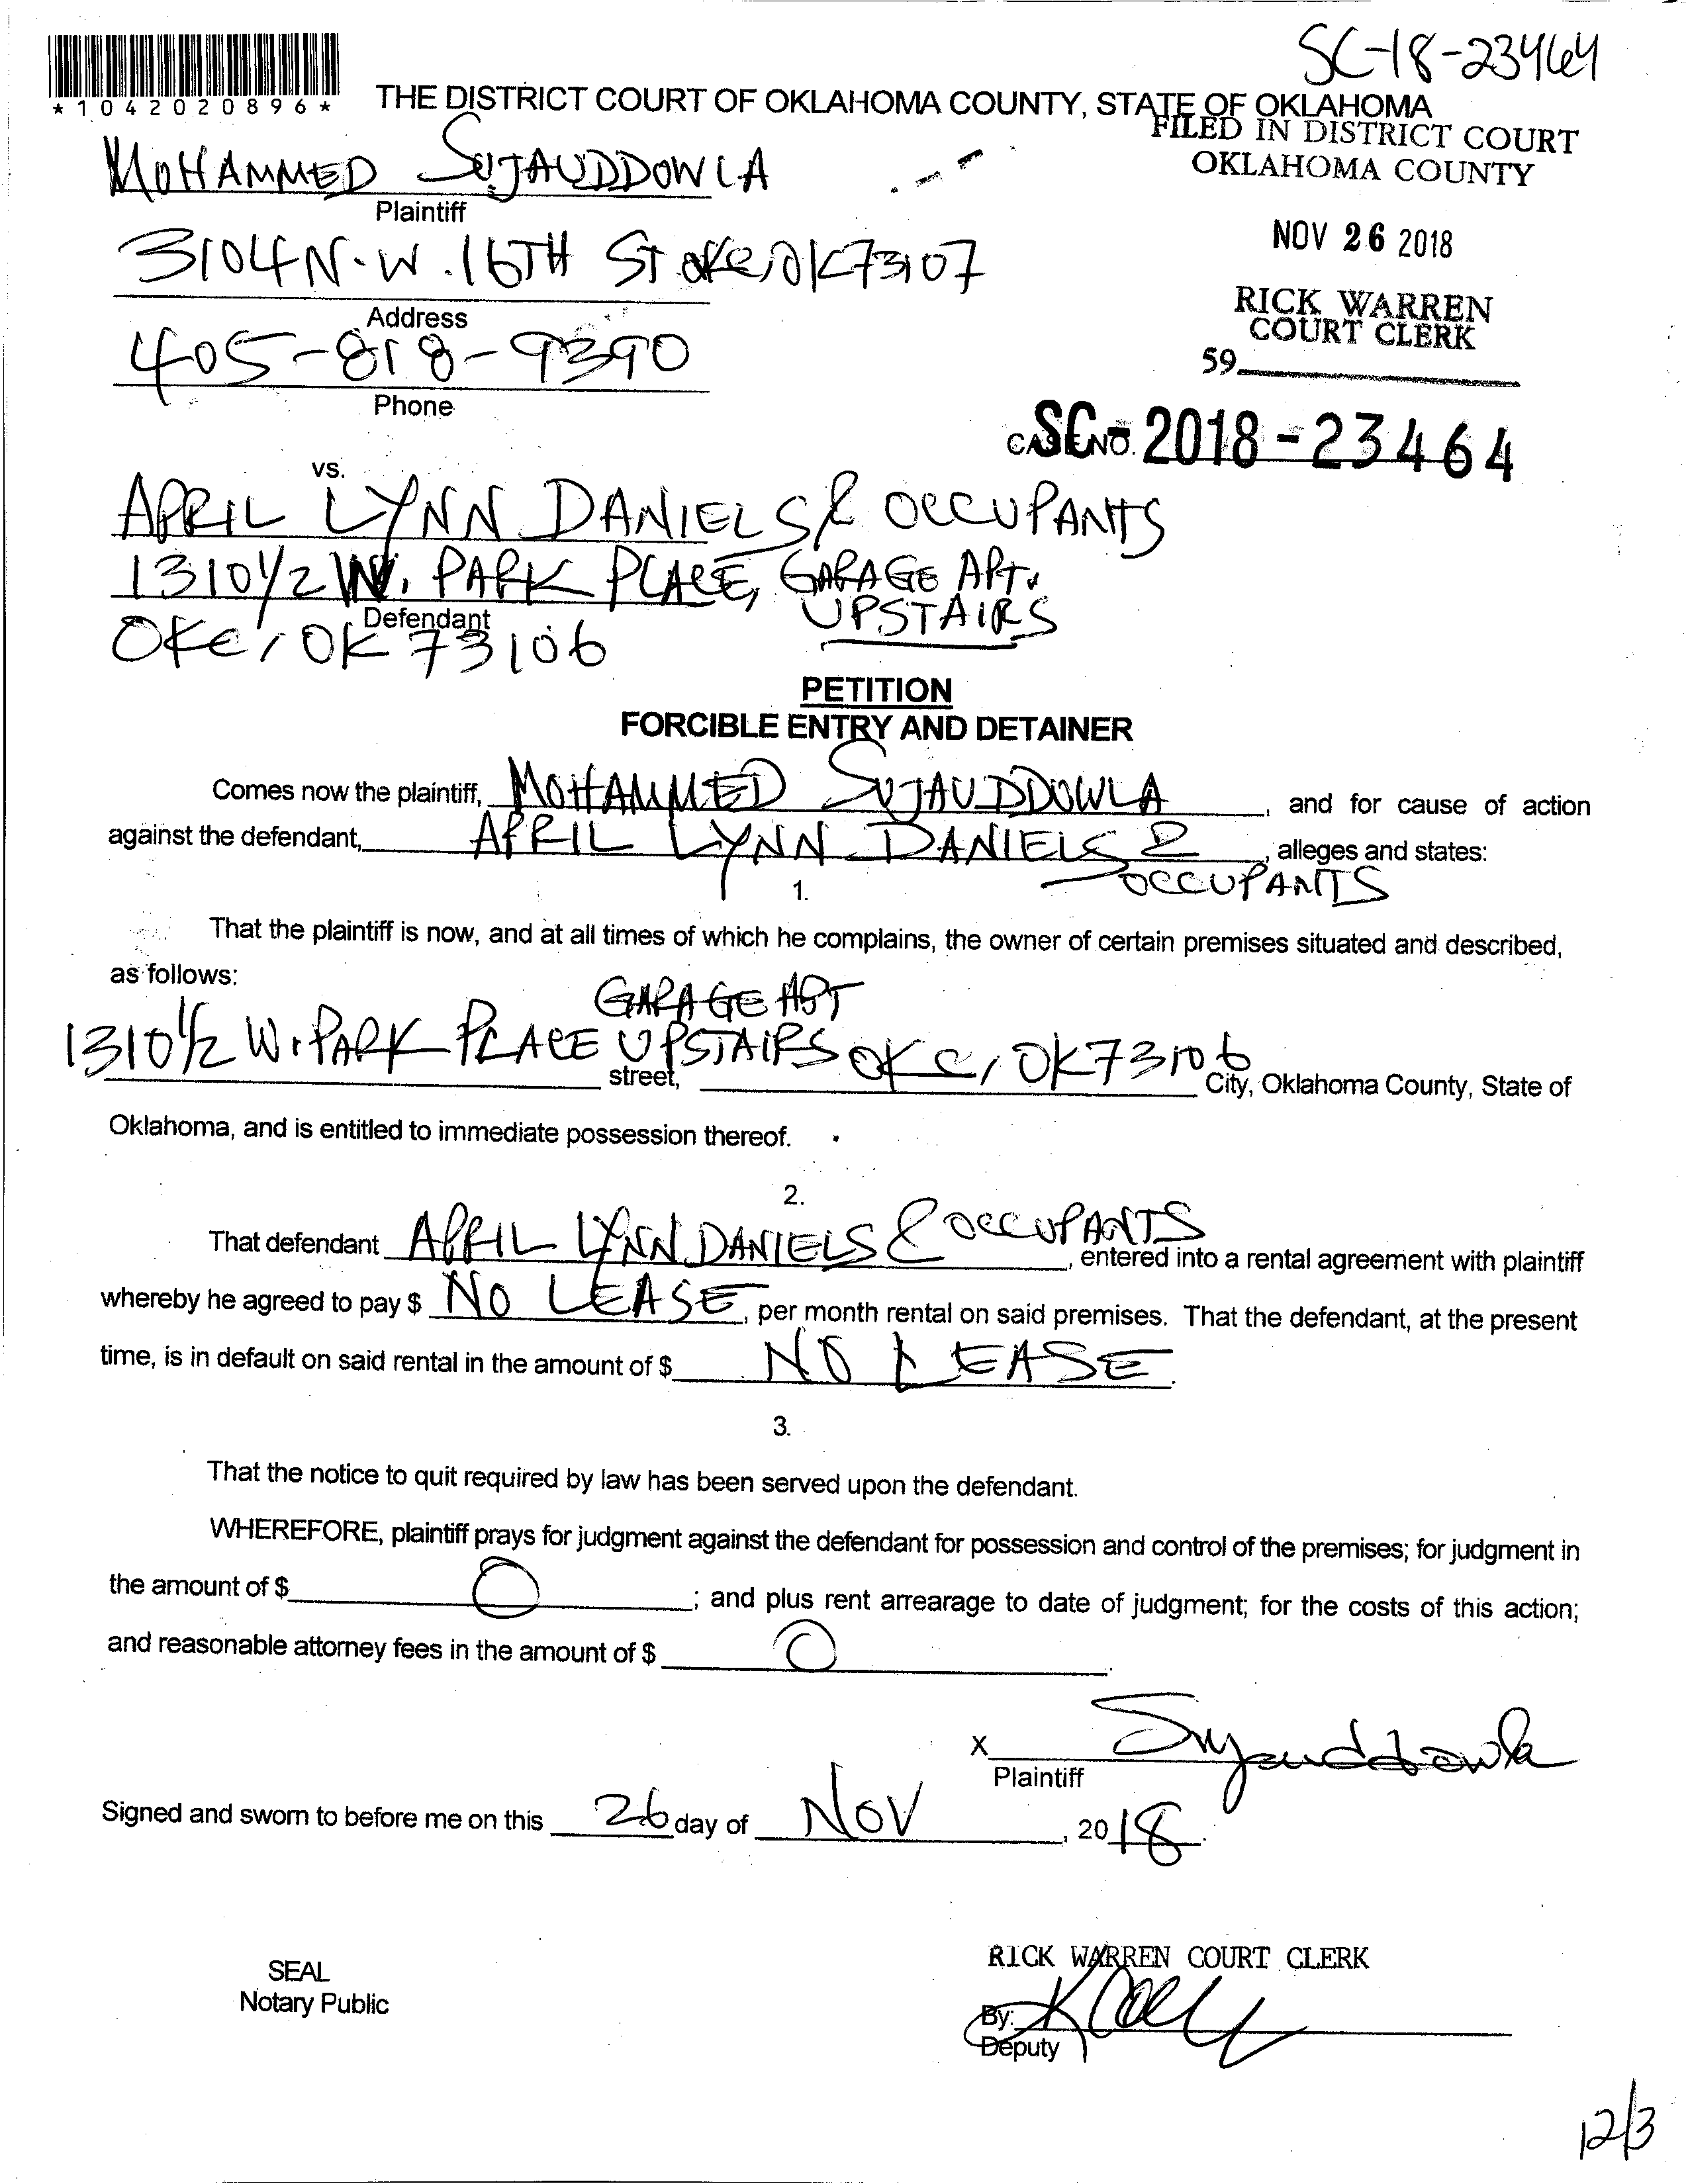 SC-18-23464
*1042020896*
THE DISTRICT COURT OF OKLAHOMA COUNTY, STATE OF OKLAHOMA
FILED IN DISTRICT COURT
OKLAHOMA COUNTY
MOHAMMED SUJAUDDOWLA
Plaintiff
NOV 26 2018
3104 N.W. 16TH ST OKC, OK 73107
Address
RICK WARREN
COURT CLERK
59
405-818-9390
Phone
CASE NO. SC-2018-23464
vs.
APRIL LYNN DANIELS & OCCUPANTS
1310 1/2 W. PARK PLACE, GARAGE APT.
UPSTAIRS
Defendant
OKC, OK 73106
PETITION
FORCIBLE ENTRY AND DETAINER
Comes now the plaintiff, MOHAMMED SUJAUDDOWLA, and for cause of action
against the defendant, APRIL LYNN DANIELS &, alleges and states:
OCCUPANTS
1.
That the plaintiff is now, and at all times of which he complains, the owner of certain premises situated and described,
as follows:
GARAGE APT
1310 1/2 W. PARK PLACE UPSTAIRS OKC, OK 73106
street, City, Oklahoma County, State of
Oklahoma, and is entitled to immediate possession thereof.
2.
That defendant APRIL LYNN DANIELS & OCCUPANTS, entered into a rental agreement with plaintiff
whereby he agreed to pay $ NO LEASE, per month rental on said premises. That the defendant, at the present
time, is in default on said rental in the amount of $ NO LEASE.
3.
That the notice to quit required by law has been served upon the defendant.
WHEREFORE, plaintiff prays for judgment against the defendant for possession and control of the premises; for judgment in
the amount of $ 0; and plus rent arrearage to date of judgment; for the costs of this action;
and reasonable attorney fees in the amount of $ 0.
X Sujauddowla
Plaintiff
Signed and sworn to before me on this 26 day of NOV, 2018.
RICK WARREN COURT CLERK
SEAL
Notary Public
By:
Deputy
12/3